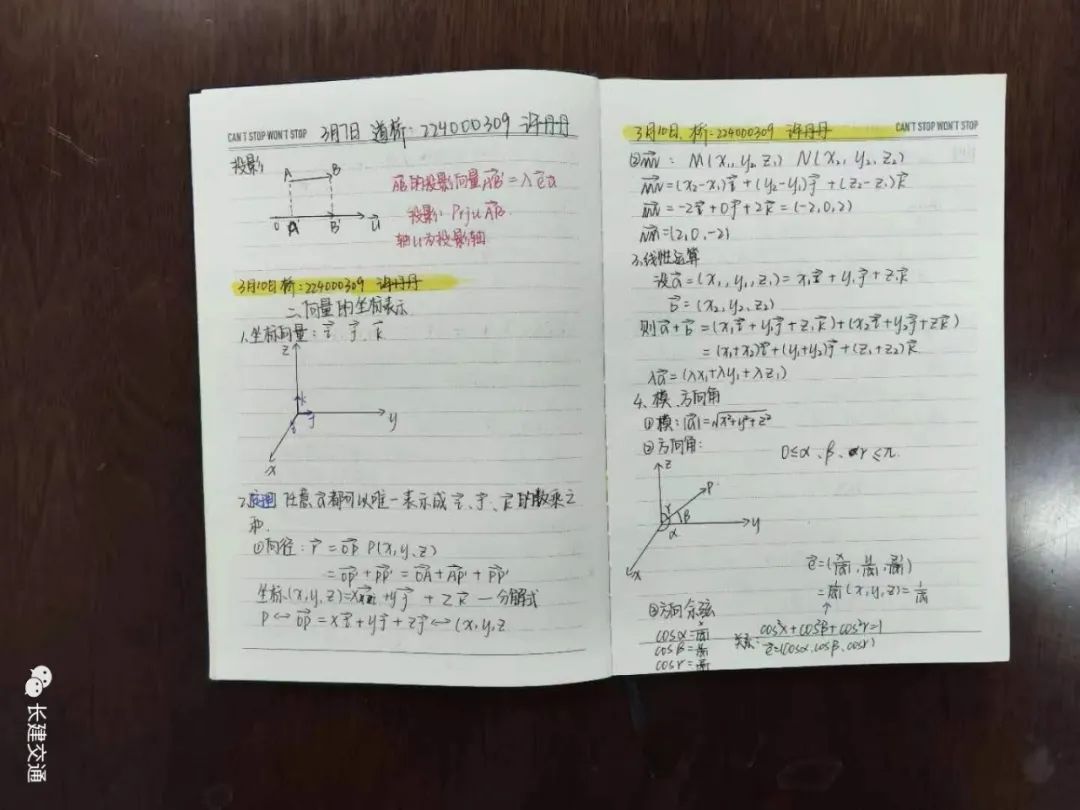 CAN'T STOP WON'T STOP 3月7日 道桥:224000309 许丹丹
投影
A B
O A' B' u
AB的投影向量A'B'=λe
投影:Prju AB.
轴u为投影轴
3月10日 桥:224000309 许丹丹
二、向量的坐标表示
1.坐标向量:i、j、k
z
k
j
i
y
x
2. 任意a都可以唯一表示成i、j、k的数乘之
和.
①向径:r=OP P(x,y,z)
=OP'+PP'=OA+AP'+PP'
坐标(x,y,z)=xi+yj+zk—分解式
P↔OP=xi+yj+zj↔(x,y,z
3月10日.桥:224000309 许丹丹 CAN'T STOP WON'T STOP
②MN: M(x₁,y₂,z₁) N(x₂,y₂,z₂)
MN=(x₂-x₁)i+(y₂-y₁)j+(z₂-z₁)k
MN=-2i+0j+2k=(-2,0,2)
NM=(2,0,-2)
3.线性运算
设a=(x₁,y₁,z₁)=x₁i+y₁j+z₁k
b=(x₂,y₂,z₂)
则a+b=(x₁i+y₁j+z₁k)+(x₂i+y₂j+zk)
=(x₁+x₂)i+(y₁+y₂)j+(z₁+z₂)k
λa=(λx₁+λy₁+λz₁)
4.模、方向角
①模:|a|=√x²+y²+z²
②方向角: 0≤α、β、γ≤π.
z
P
γ
β
α
y
x
e=(x/|a|,y/|a|,z/|a|)
=1/|a|(x,y,z)=
③方向余弦
cosα=x/|a|
cosβ=
cosγ=
关系: cos²α+cos²β+cos²γ=1
e=(cosα、cosβ、cosγ)
长建交通